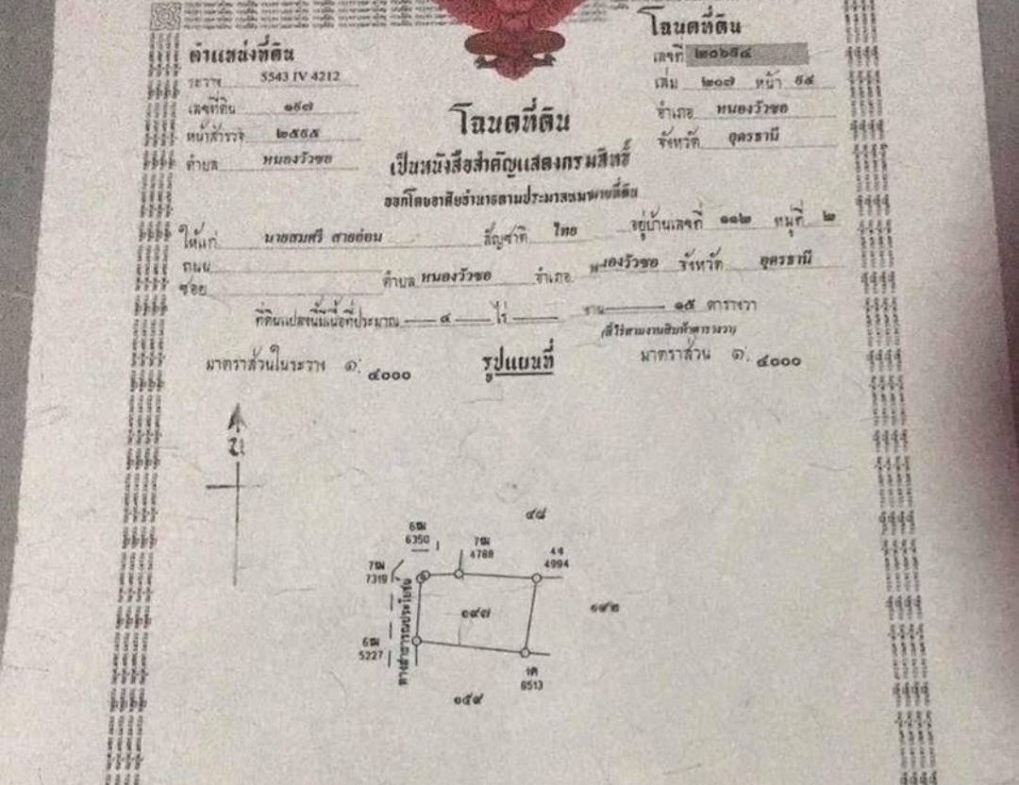 ตำแหน่งที่ดิน
ระวาง 5543 IV 4212
เลขที่ดิน ๑๔๗
หน้าสำรวจ
ตำบล หนองวัวซอ
โฉนดที่ดิน
เลขที่
เล่ม ๒๐๗ หน้า
อำเภอ หนองวัวซอ
จังหวัด อุดรธานี
โฉนดที่ดิน
เป็นหนังสือสำคัญแสดงกรรมสิทธิ์
ออกโดยอาศัยอำนาจตามประมวลกฎหมายที่ดิน
ให้แก่ นายสมศรี สายอ่อน สัญชาติ ไทย อยู่บ้านเลขที่ ๑๑๒ หมู่ที่ ๒
ถนน
ซอย ตำบล หนองวัวซอ อำเภอ หนองวัวซอ จังหวัด อุดรธานี
ที่ดินแปลงนี้มีเนื้อที่ประมาณ ๔ ไร่ งาน ๑๕ ตารางวา
(สี่ไร่สามงานสิบห้าตารางวา)
มาตราส่วนในระวาง ๑: ๔๐๐๐ รูปแผนที่ มาตราส่วน ๑: ๔๐๐๐
น
๔๘
6ฒ
6350
7ฒ
4788
4ง
4994
7ฒ
7319
๑๔๗
๑๔๒
ทางสาธารณประโยชน์
6ฒ
5227
1ค
6513
๑๕๙